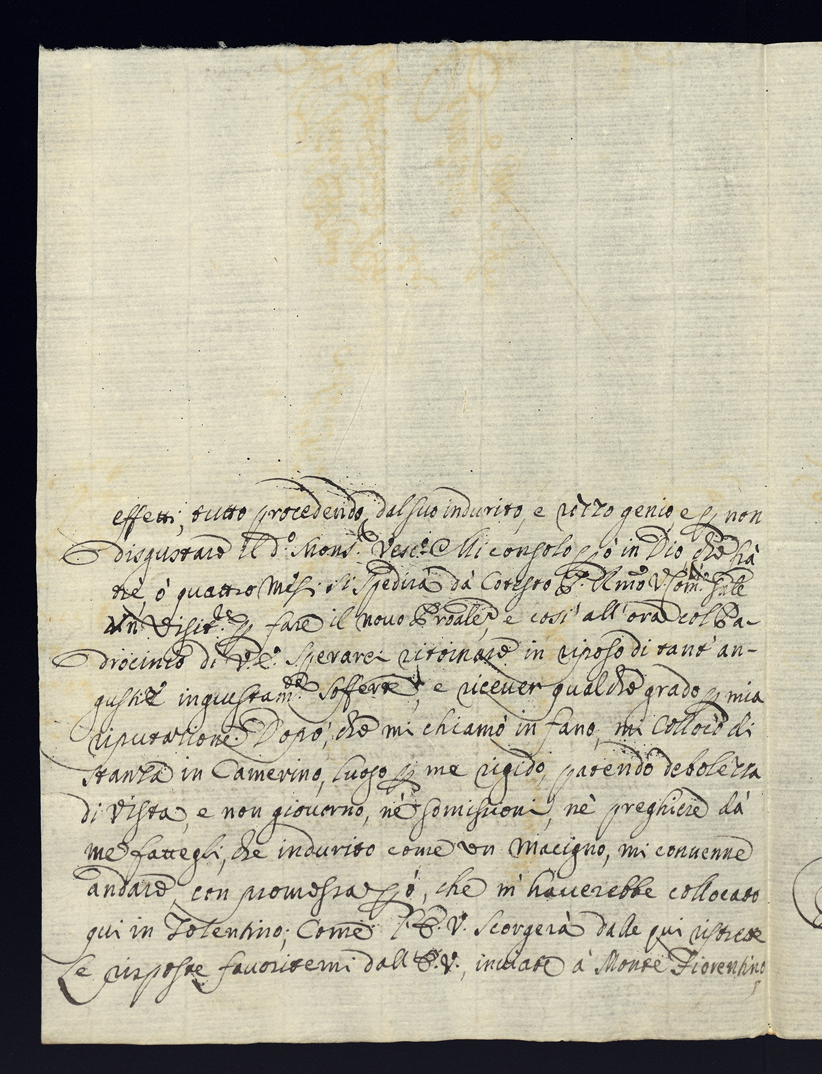 effetti, tutto procedendo dal suo indurito, e rizzo genio, e p non
disgustare il d.º Mons.r Vesc.º Mi consolo pò in Dio, che frà
trè ò quattro Mesi si spedirà dà Cotesto
un Visit.re p fare il novo Pñale, e così all'ora col Pa-
drocinio di V.E. Sperarei ritornare in riposo di tant'an-
gustie ingiustam.te Sofferte, e ricever qualche grado p mia
riputatione. Dopò, che mi chiamò in fano, mi collocò di
stanza in Camerino, luogo p me rigido, patendo debolezza
di Vista, e non giovorno, nè somissioni, nè preghiere dà
me fattegli, che indurito come un Macigno, mi convenne
andare, con promessa pò, che m'haverebbe collocato
qui in Tolentino; Come l'P.V. Scorgerà dalle qui ristrette
Le risposte favoritemi dall P.V., inviate à Monte Fiorentino